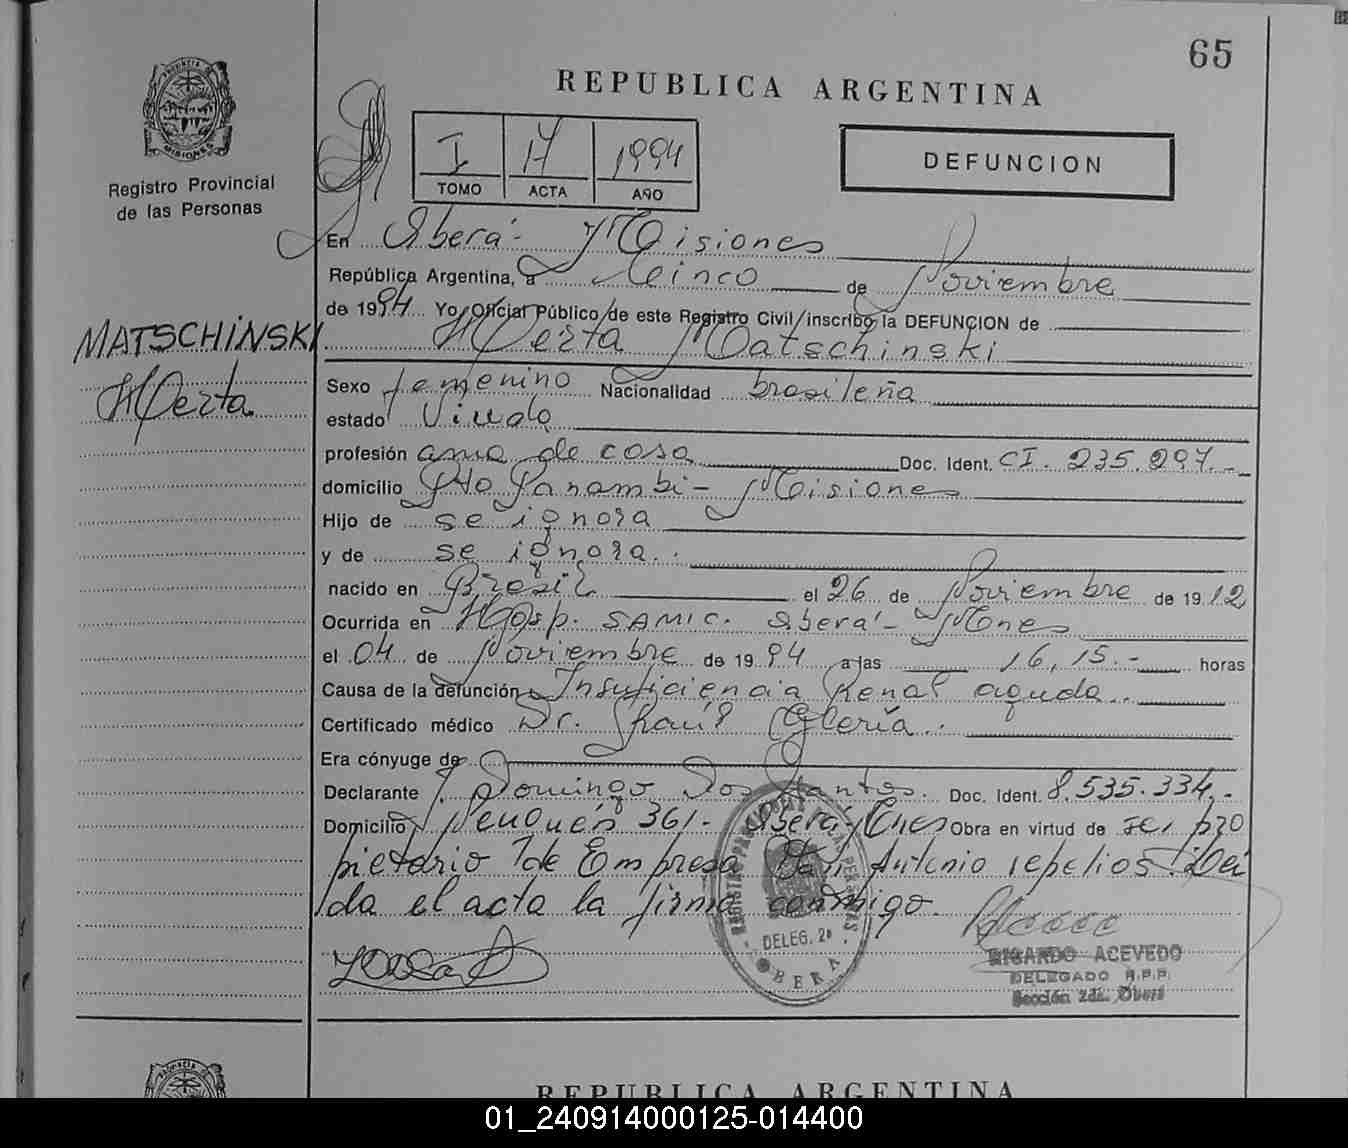 65
REPUBLICA ARGENTINA
PROVINCIA DE
MISIONES
Registro Provincial
de las Personas
I 17 1994
TOMO ACTA AÑO
DEFUNCION
En Oberá - Misiones
República Argentina, a Cinco de Noviembre
de 1994 Yo, Oficial Público de este Registro Civil inscribo la DEFUNCION de
MATSCHINSKI
Herta
Herta Matschinski
Sexo femenino Nacionalidad brasileña
estado Viuda
profesión ama de casa Doc. Ident. CI. 235.297.-
domicilio Pto Panambi - Misiones
Hijo de se ignora
y de se ignora.
nacido en Brasil el 26 de Noviembre de 1912
Ocurrida en Hosp. SAMIC. Oberá - Mnes
el 04 de Noviembre de 1994 a las 16,15.- horas
Causa de la defunción Insuficiencia Renal aguda.
Certificado médico Dr. Raúl Gloria.
Era cónyuge de
Declarante Domingo Dos Santos. Doc. Ident. 8.535.334.-
Domicilio Neuquén 361- Oberá - Mnes Obra en virtud de ser pro
pietario de Empresa San Antonio sepelios. Leí
da el acta la firma conmigo.
DELEG. 2a
OBERA
RICARDO ACEVEDO
DELEGADO R.P.P.
Sección 2da. Oberá
REPUBLICA ARGENTINA
01_240914000125-014400